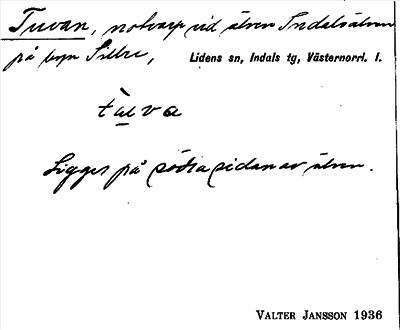 Tuvan, notvarp vid älven Indalsälven
på byn Sillre, Lidens sn, Indals tg, Västernorrl. l.
Ligger på södra sidan av älven.
VALTER JANSSON 1936